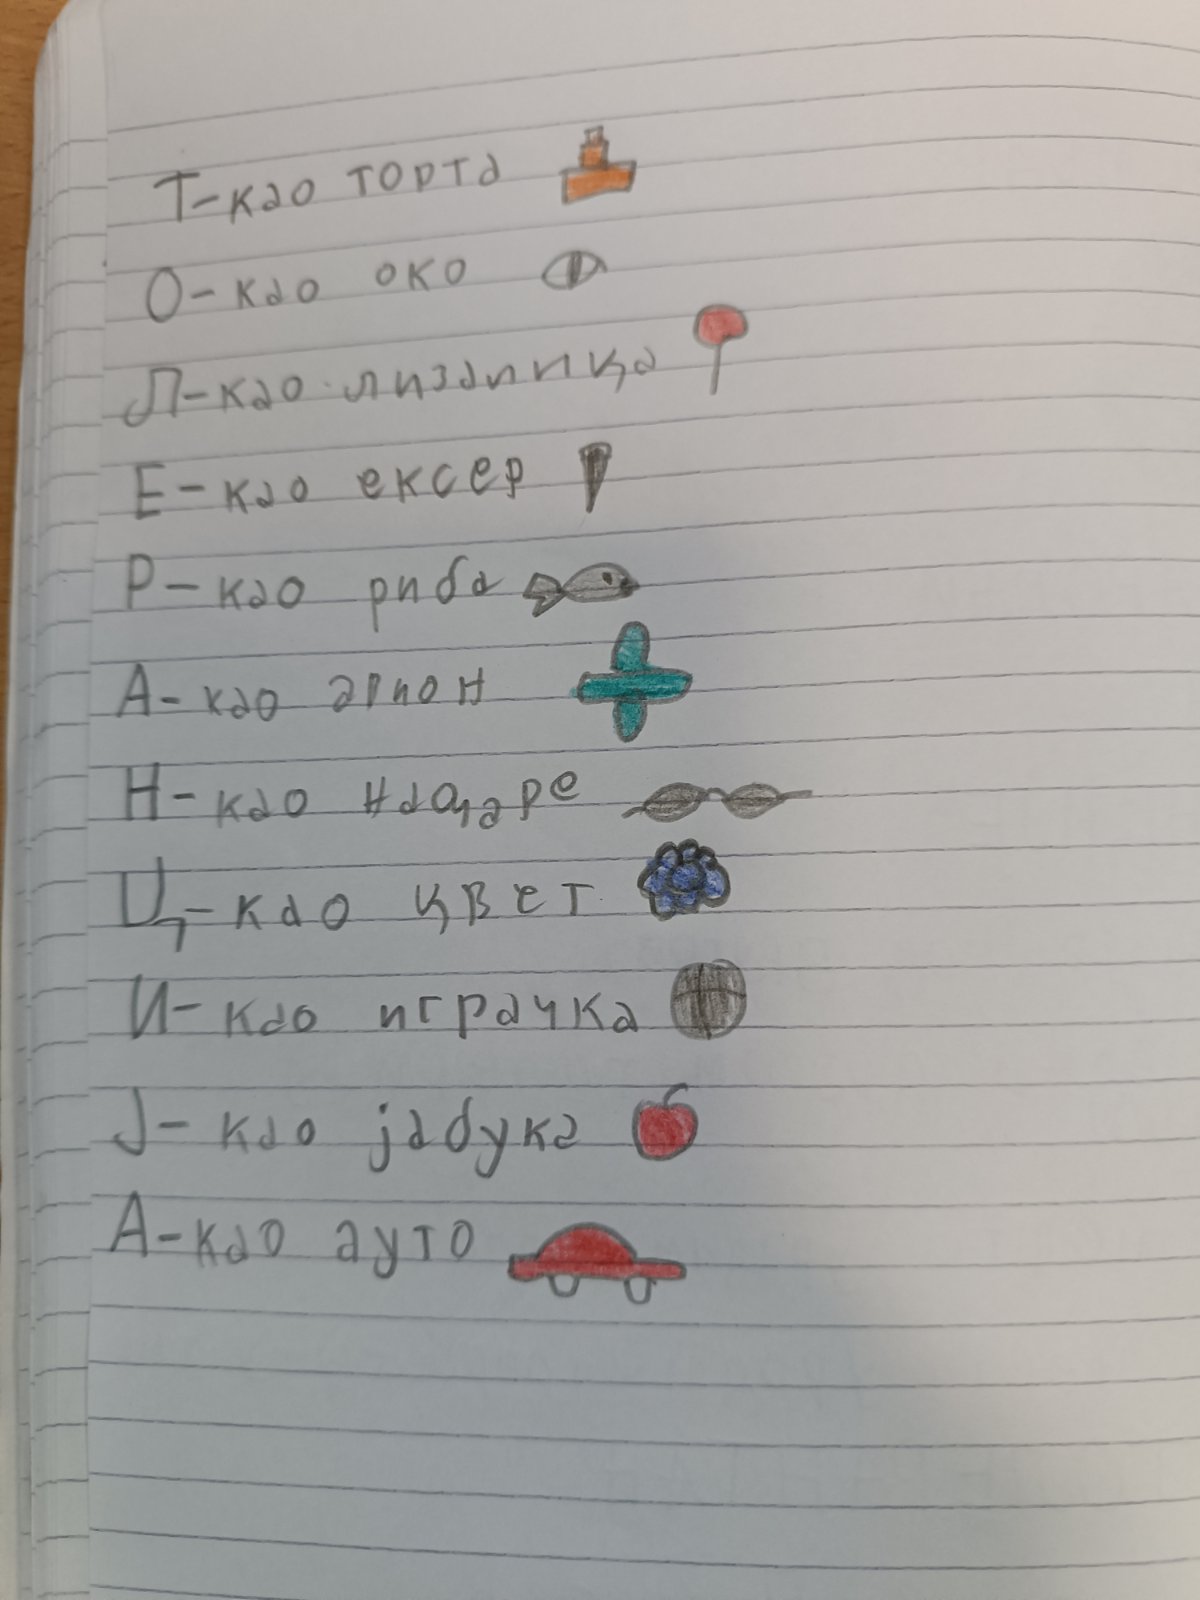 Т-као торта
О-као око
Л-као лизалица
Е-као ексер
Р-као риба
А-као апион
Н-као наочаре
Ц-као цвет
И-као играчка
Ј-као јабука
А-као ауто